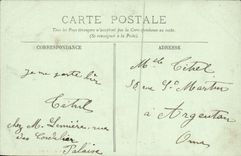 CARTE POSTALE
Tous les Pays étrangers n'acceptent pas la Correspondance au recto.
(Se renseigner à la Poste)
CORRESPONDANCE
je me porte bien
Tihel
chez M. Lemière, rue
des Cordeliers
Falaise
ADRESSE
Mlle Tihel
58 rue St Martin
à Argentan
Orne